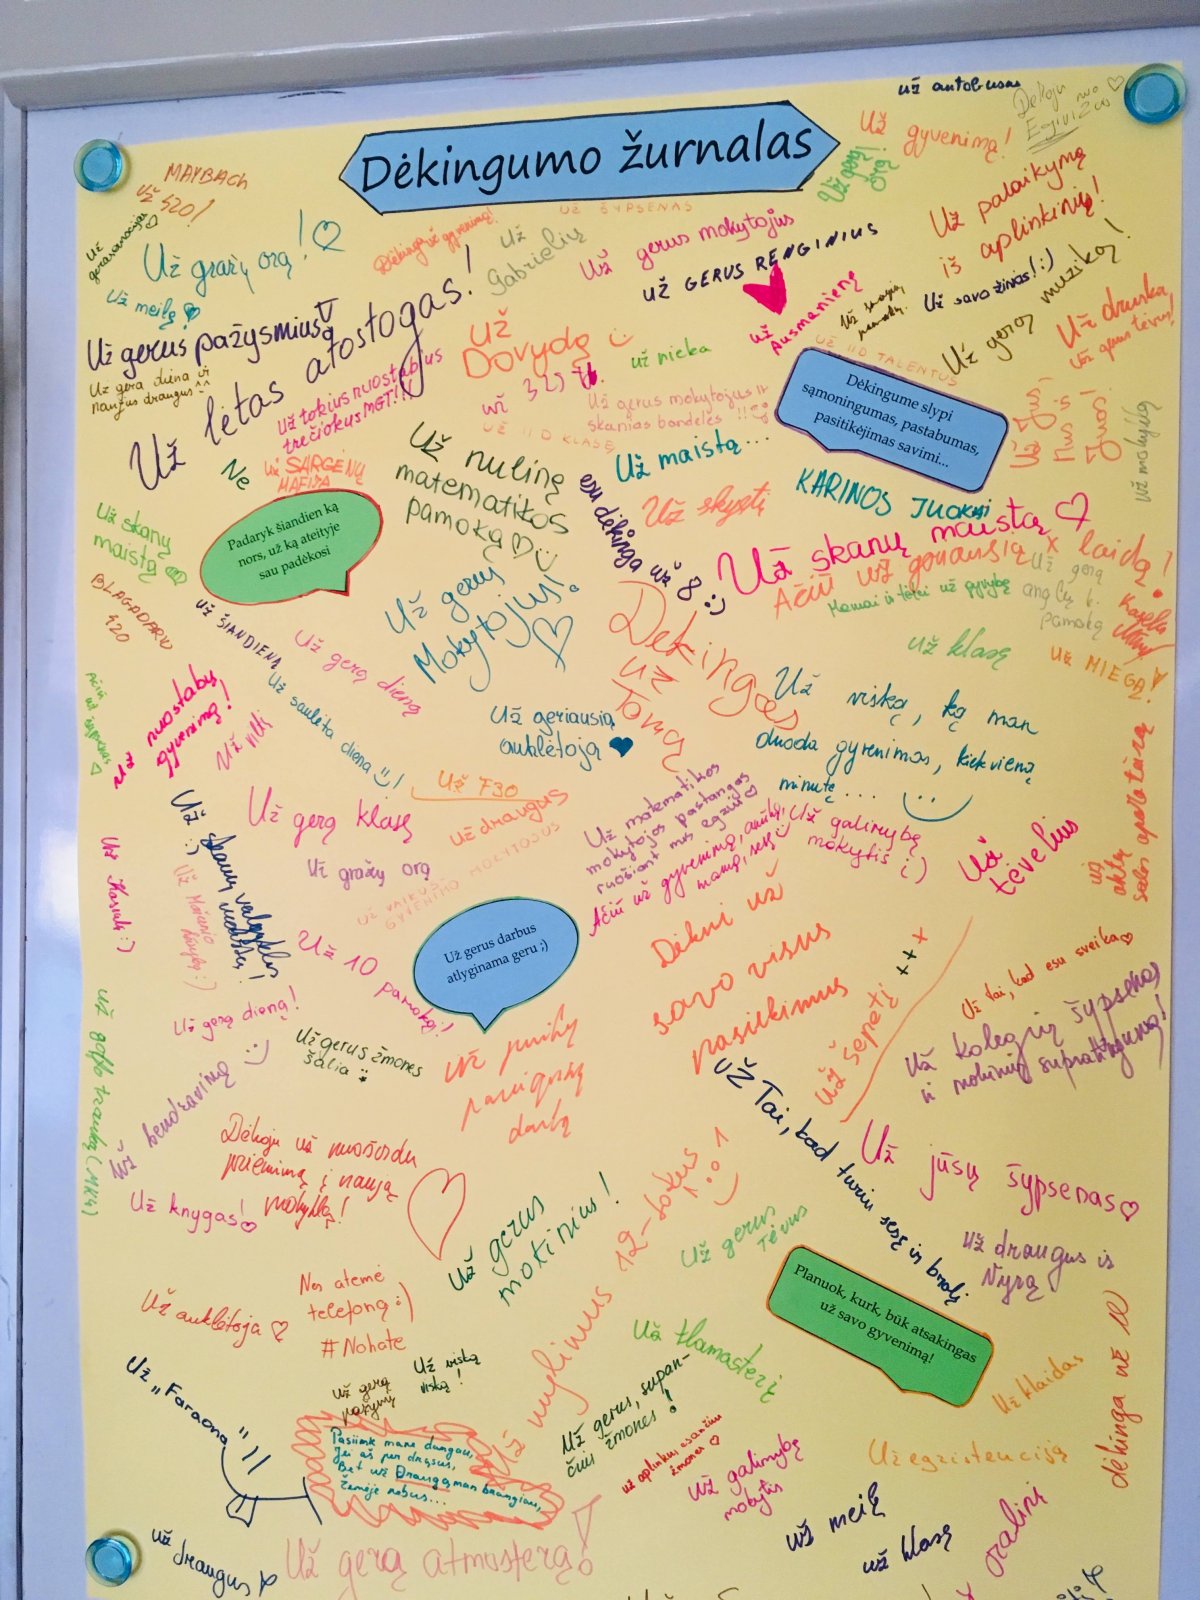 Už autobusus
Dėkoju
Dėkingumo žurnalas
Už gyvenimą!
Už gerą
orą!
MAYBACH
Už 420!
Už palaikymą
iš aplinkinių!
Už gražų orą!
Dėkinga už gyvenimą!
Už
Gabrielių
UŽ ŠYPSENAS
Už gerus mokytojus
UŽ GERUS RENGINIUS
Už meilę
Už savo žinias! :)
Už gerą muziką!
Už druską
Už gerus tėvus!
Už
Ausmanienę
Už gerus pažysmius
Už lėtas atostogas!
Už gera diena ir
naujus draugus ^^
Už
Dovydą
Už nieka
UŽ IID TALENTUS
Už tokius nuostabius
trečiokus MGT!!!
Už gerus mokytojus ir
skanias bandeles !!
UŽ II D KLASĘ
Dėkingume slypi
sąmoningumas, pastabumas,
pasitikėjimas savimi...
Už Jus!
Mus ir
Juos!
Už mokyklą
Ne
Už SARGĖNŲ
MAFIJA
Už nulinę
matematikos
pamoką
Už maistą...
esu dėkinga už 8 :)
Už skystį
KARINOS JUOKAI
Už skanų maistą
Padaryk šiandien ką
nors, už ką ateityje
sau padėkosi
Už skanų
maistą
BLAGODARU
420
Už gerus
Mokytojus!
Ačiū už geriausią laidą!
Mamai ir tėtei už gyvybę
Už gerą
anglų k.
pamoką
Už klasę
UŽ MIEGĄ!
UŽ ŠIANDIENĄ
Už gerą dieną
Dėkingas
už
Tomą
Už saulėta diena
Už nuostabų
gyvenimą!
Už geriausią
auklėtoją
Už viską, ką man
duoda gyvenimas, kiekvieną
minutę...
Už F30
Už draugus
Už gerą klasę
Už matematikos
mokytojos pastangas
ruošiant mus egzui
Ačiū už gyvenimą, anūkę,
mamą, sesę
Už galimybę
mokytis :)
Už
tėvelius
Už
aktų
salės aparatūrą
Už gražų orą
UŽ VAIKUS
GYVENIMO MOKYTOJUS
Už skanų valgyklos
maistą!
:)
Už 10 pamokų!
Už gerus darbus
atlyginama geru ;)
Dėkui už
savo visus
pasiekimus
Už šepetį +++
Už tai, kad esu sveika
Už kolegių šypsenas
ir mokinių supratingumą!
Už gerą dieną!
Už gerus žmones
šalia
Už puikų
pareigūnų
darbą
Už bendravimą
Už Tai, kad turiu sesę ir brolį
Dėkoju už nuoširdu
priėmimą į naują
mokyklą!
Už knygas!
Už jūsų šypsenas
Už gerus
mokinius!
Už gerus
Tėvus
Už draugus ir
Nyrą
Už mylimus 12-tokus!
Planuok, kurk, būk atsakingas
už savo gyvenimą!
Nes atėmė
telefoną :)
#Nohate
Už auklėtoja
Už viską
viską!
Už gerą
pažymį
Už flamasterį
Už "Faraoną"
Už gerus, supran-
čius žmones!
Už klaidas
dėkinga už
Pasiimk mane dangau,
Jei aš per drąsus,
Bet už Draugą man brangiau,
Žemėje nebus...
už aplinkui esančius
žmones
Už galimybę
mokytis
Už egzistenciją
už meilę
už klasę
už draugus
Už gerą atmosferą!